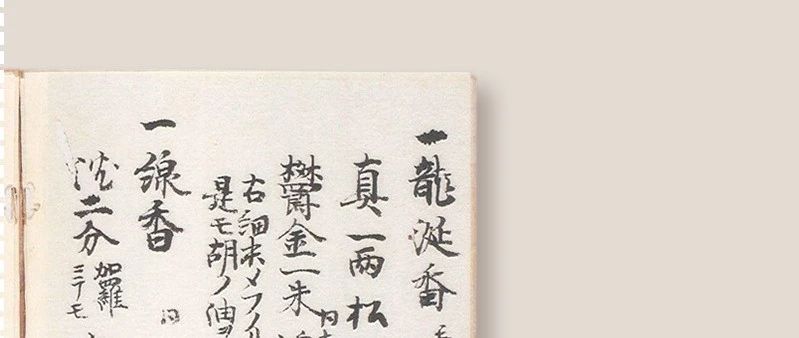 一龍涎香
真一両松
欝金一朱
右細末メフノリ
是モ胡ノ油
一線香
沈二分
加羅
ニテモ